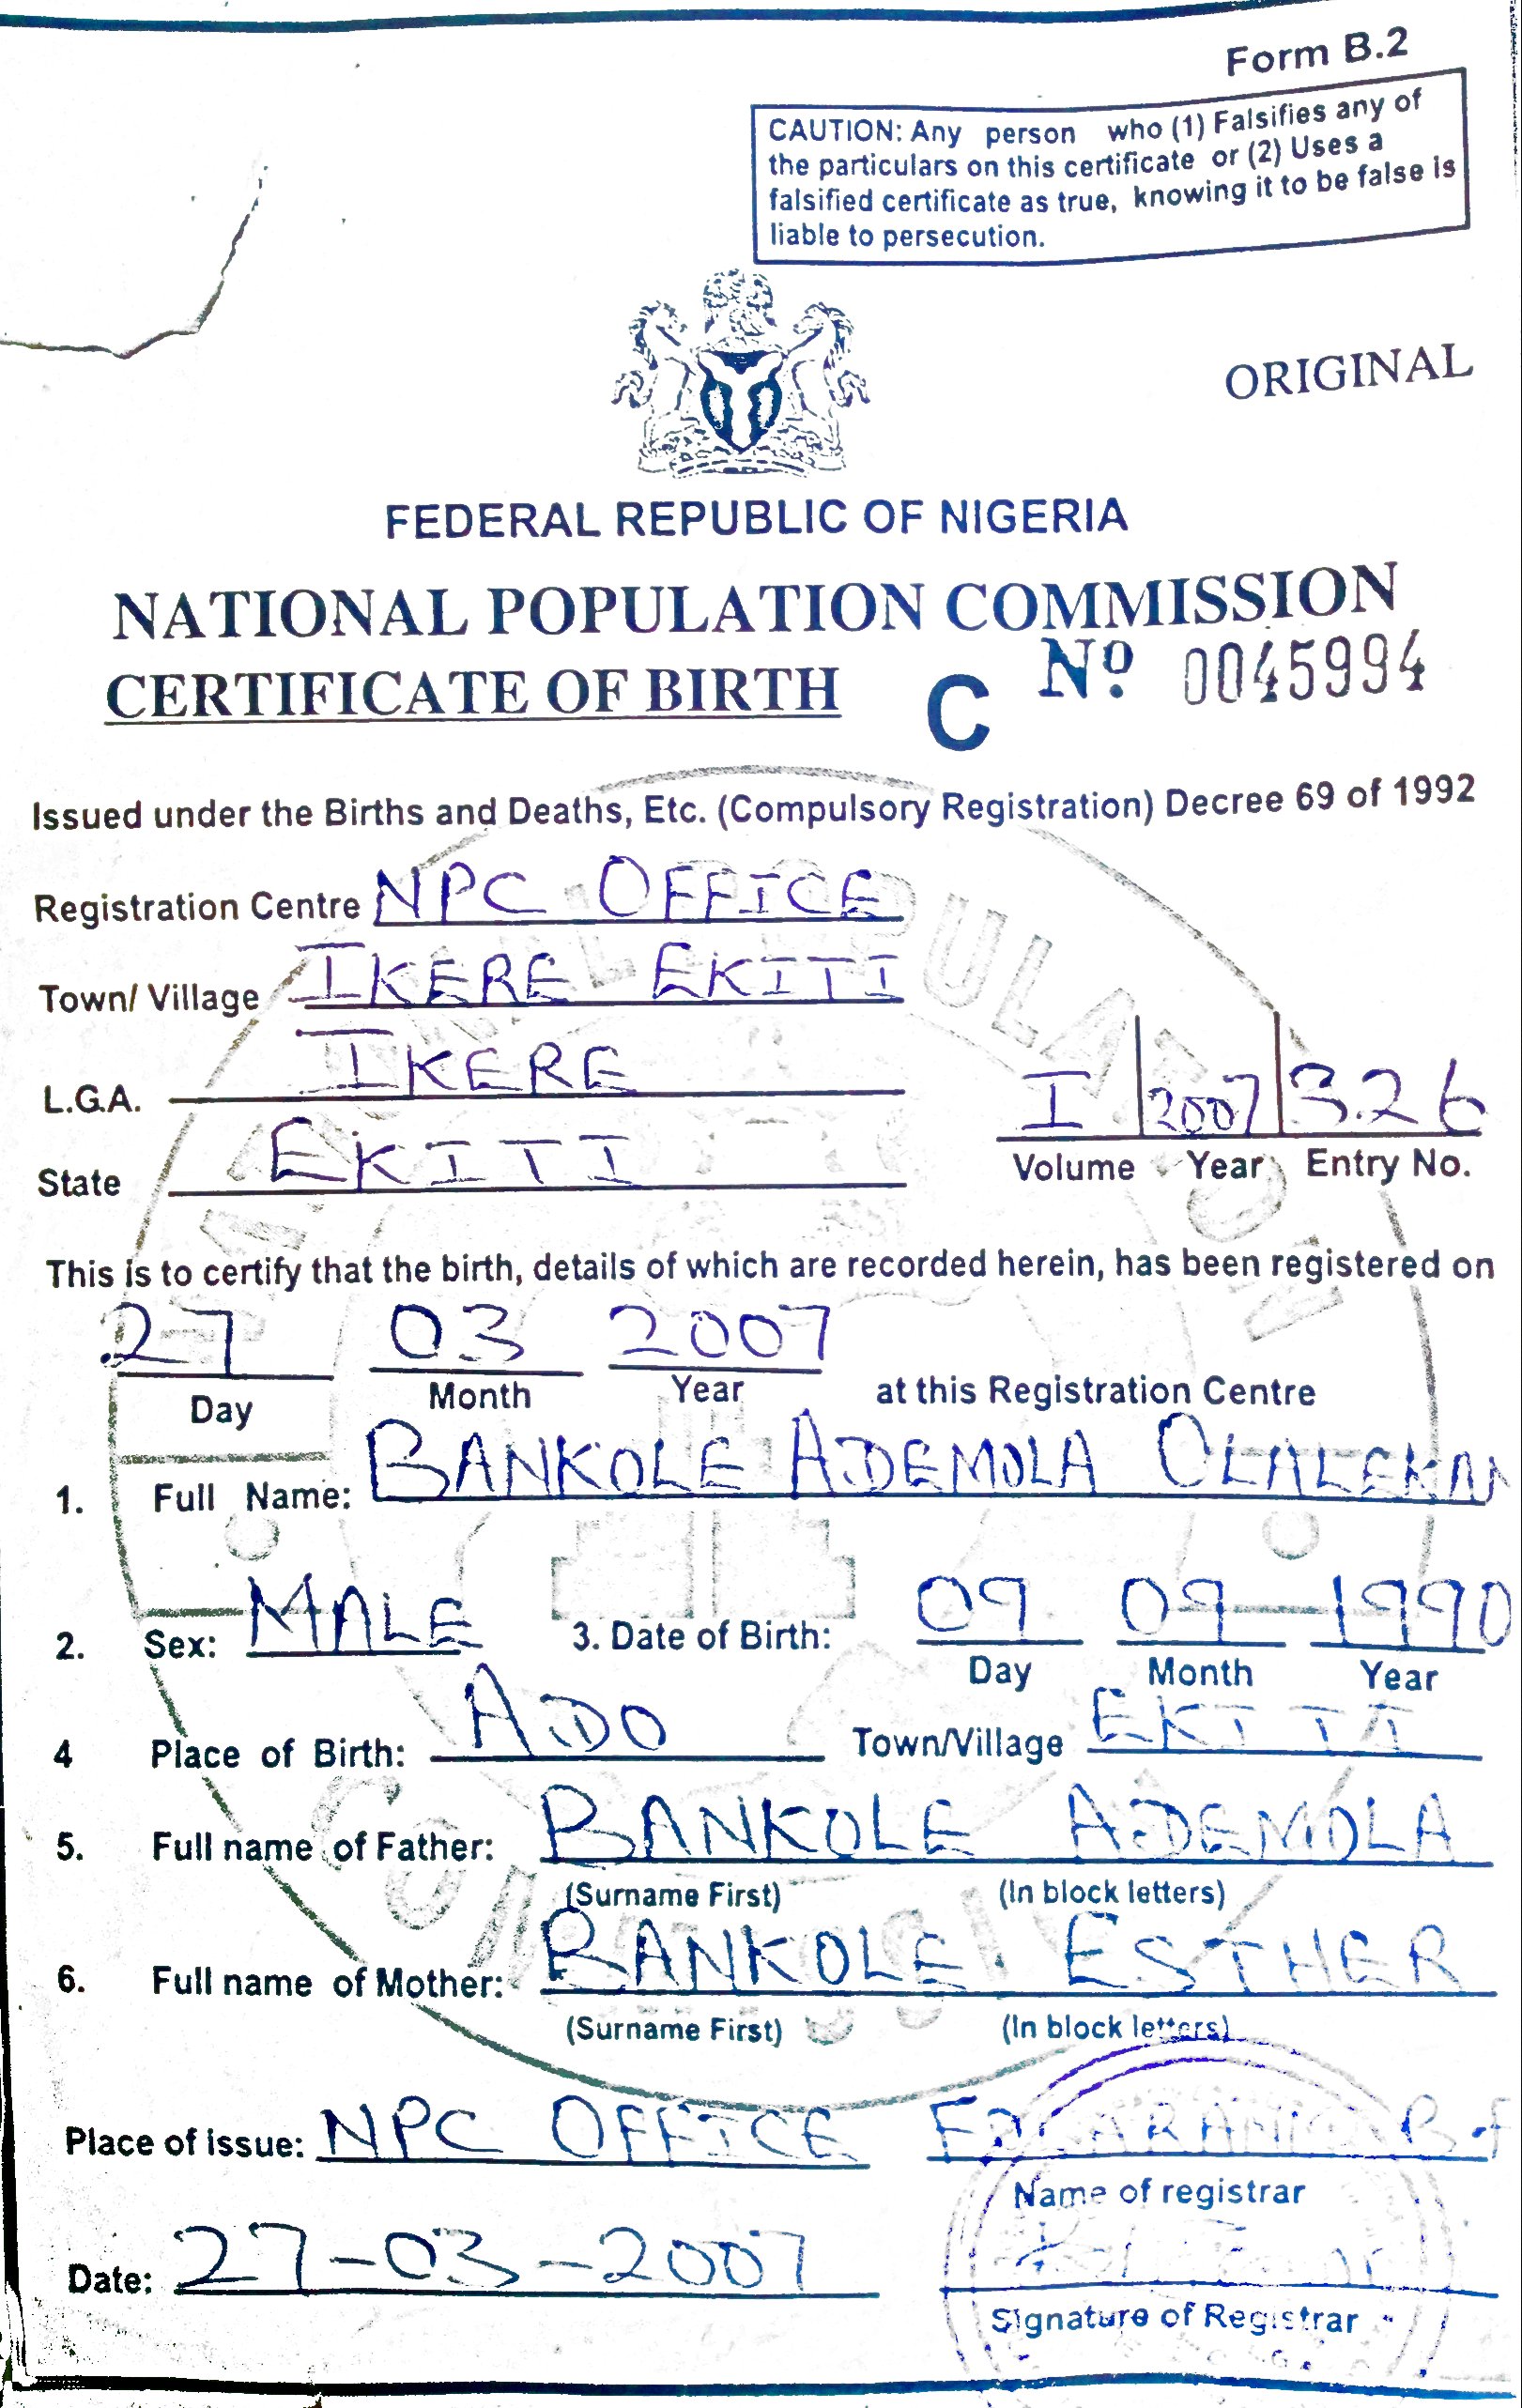 Form B.2
CAUTION: Any person who (1) Falsifies any of
the particulars on this certificate or (2) Uses a
falsified certificate as true, knowing it to be false is
liable to persecution.
ORIGINAL
FEDERAL REPUBLIC OF NIGERIA
NATIONAL POPULATION COMMISSION
CERTIFICATE OF BIRTH C Nº 0045994
Issued under the Births and Deaths, Etc. (Compulsory Registration) Decree 69 of 1992
Registration Centre NPC OFFICE
Town/ Village IKERE EKITI
L.G.A. IKERE
I 2007 326
State EKITI
Volume Year Entry No.
This is to certify that the birth, details of which are recorded herein, has been registered on
27 03 2007
Day Month Year at this Registration Centre
1. Full Name: BANKOLE ADEMOLA OLALEKAN
2. Sex: MALE 3. Date of Birth: 09 09 1990
Day Month Year
4 Place of Birth: ADO Town/Village EKITI
5. Full name of Father: BANKOLE ADEMOLA
(Surname First) (In block letters)
6. Full name of Mother: BANKOLE ESTHER
(Surname First) (In block letters)
Place of issue: NPC OFFICE
Name of registrar
Date: 27-03-2007
Signature of Registrar